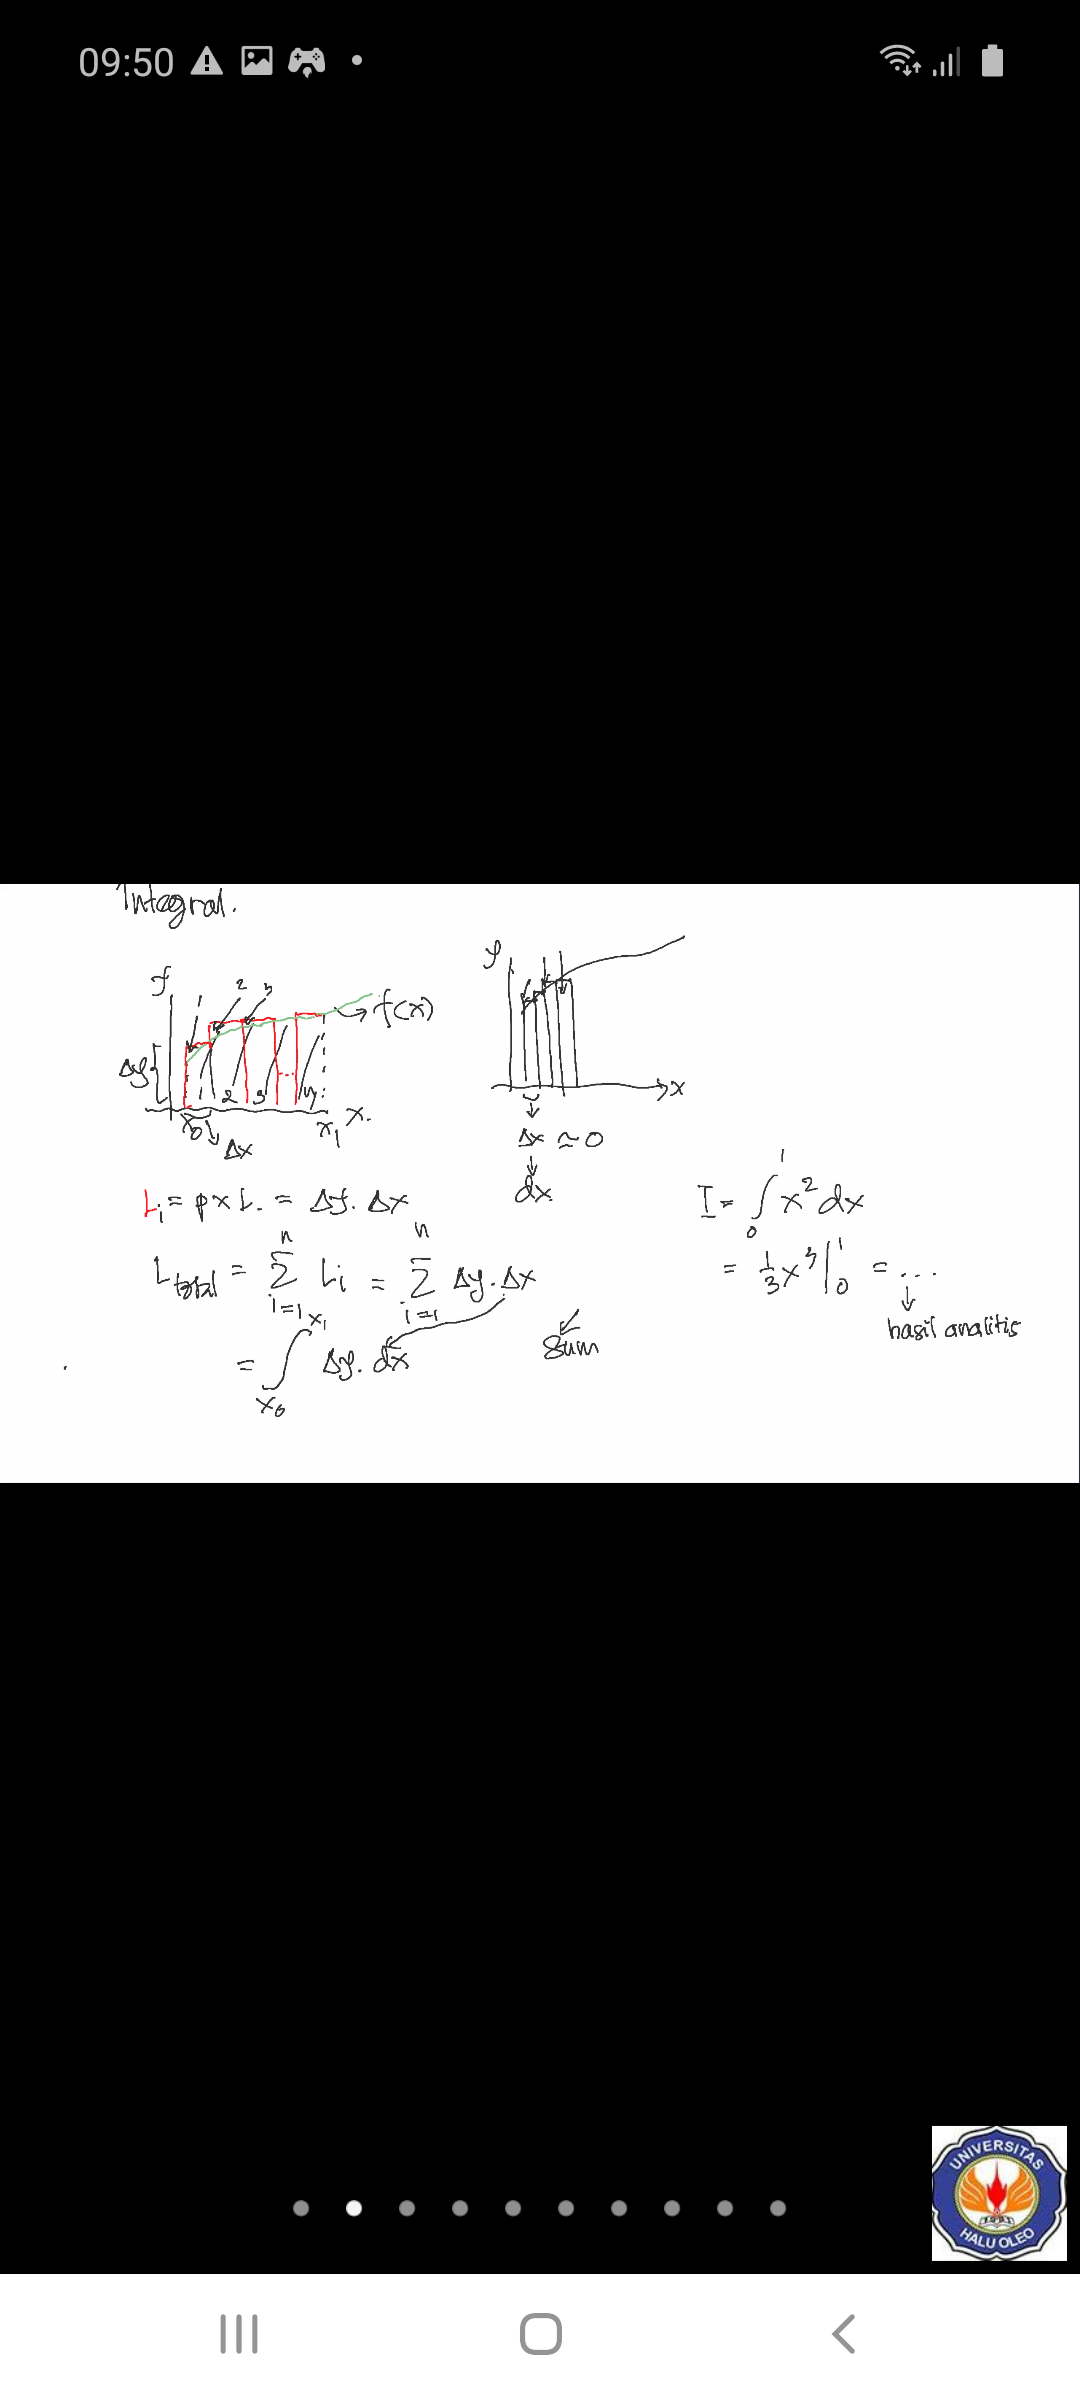 09:50
Integral.
f
1 2 3
f(x)
Δy
2 3 n
x₀ x₁ x.
Δx
y
x
Δx ≃ 0
dx
Lᵢ = p x L. = Δy. Δx
L total = Σ Lᵢ = Σ Δy. Δx
n n
i=1 i=1
= ∫ Δy. dx
x₁
x₀
Sum
I = ∫₀¹ x² dx
= 1/3 x³ |₀¹ = ...
hasil analitis
UNIVERSITAS
HALU OLEO